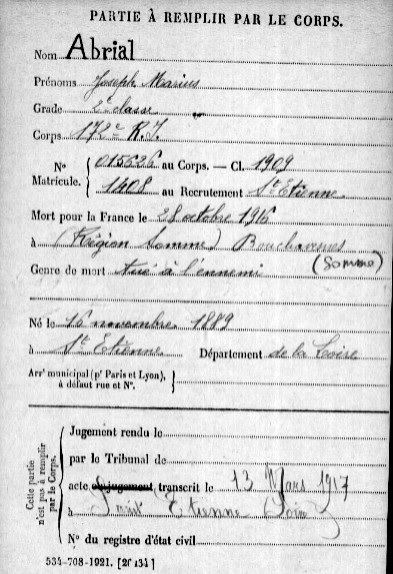 PARTIE À REMPLIR PAR LE CORPS.
Nom Abrial
Prénoms Joseph Marius
Grade 2e classe
Corps 172e R.I.
Nº 015626 au Corps. — Cl. 1909
Matricule. 1408 au Recrutement St Etienne
Mort pour la France le 28 octobre 1916
à (Région Somme) Bouchavesnes
(Somme)
Genre de mort tué à l'ennemi
Né le 16 novembre 1889
à St Etienne Département de la Loire
Arrt municipal (pr Paris et Lyon),
à défaut rue et Nº.
Cette partie
n'est pas à remplir
par le Corps.
Jugement rendu le
par le Tribunal de
acte ou jugement transcrit le 13 Mars 1917
à Saint Etienne Loire
Nº du registre d'état civil
534-708-1921. [26434]